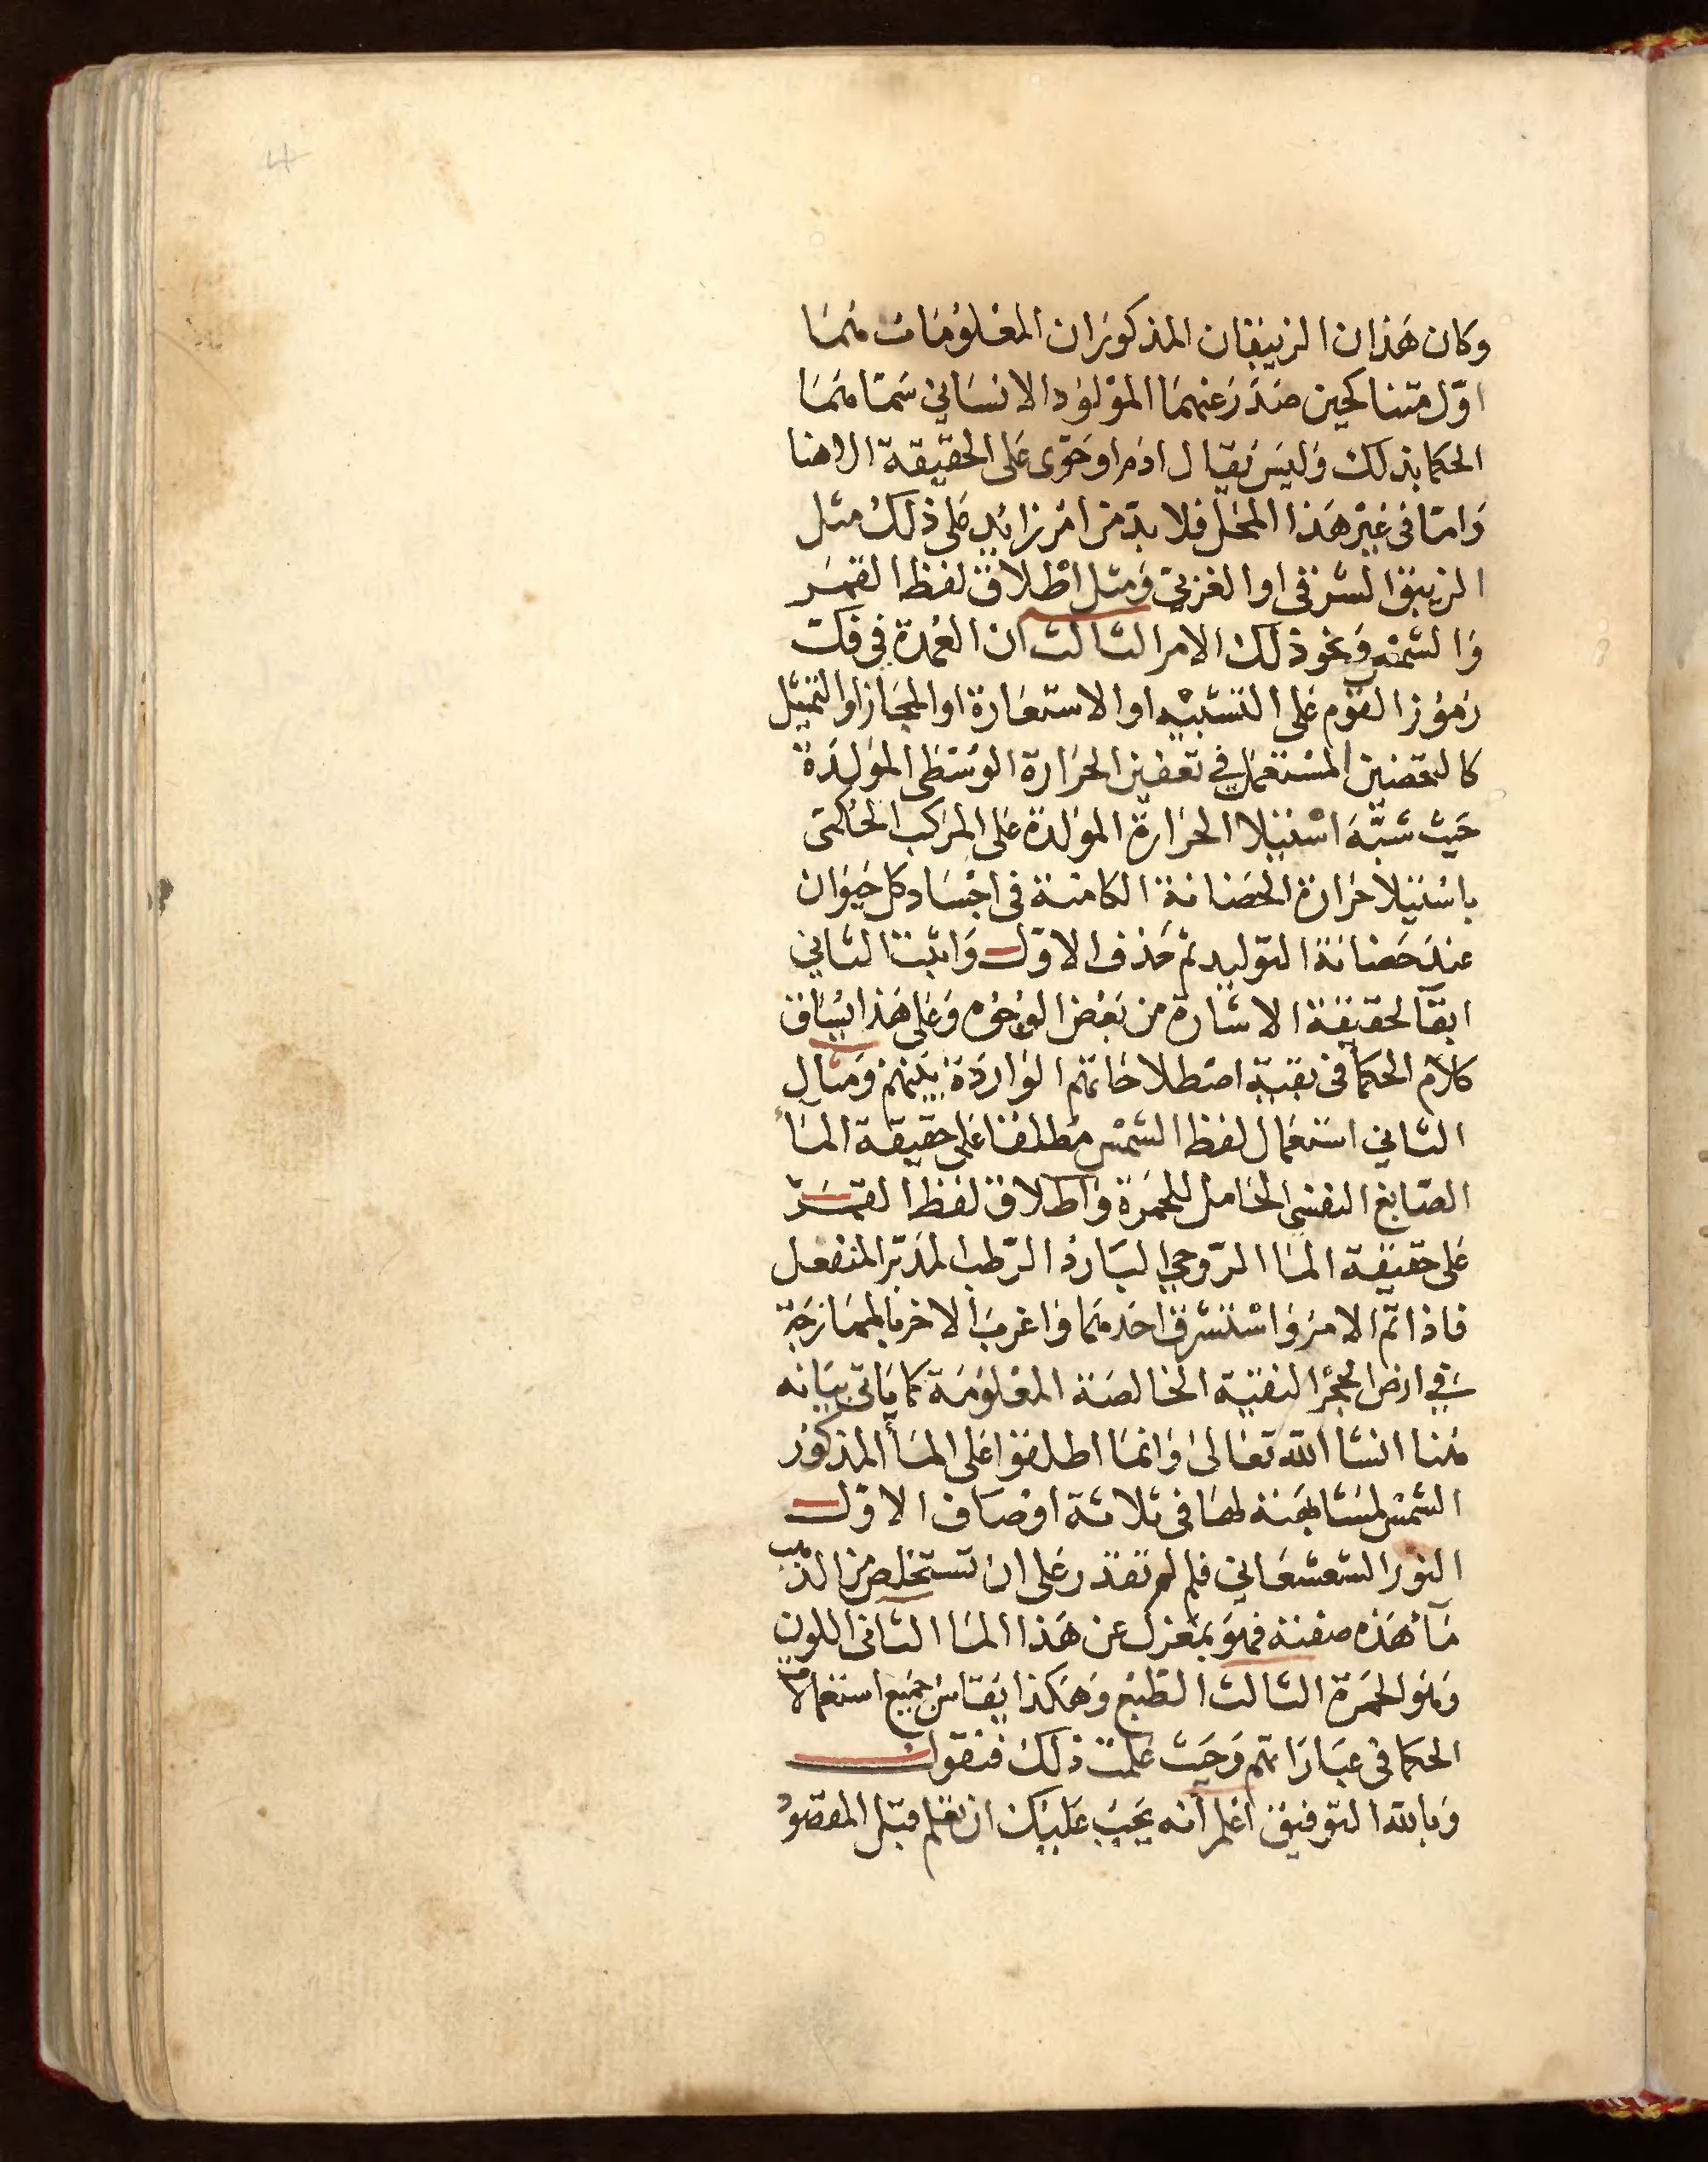 وكان هذان الزيبقان المذكوران المعلومات هما
اول متناكحين صدر عنهما المولود الانساني سمتاهما
الحكما بذلك وليس يقال ادم او حوى على الحقيقة الا هنا
واما في غير هذا المحل فلا بد من امر زايد على ذلك مثل
الزيبق الشرقي او الغربي ومثل اطلاق لفظ القمر
والشمس ونحو ذلك الامر الثالث ان العمدة في فك
رموز القوم على التشبيه او الاستعارة او المجاز او التمثيل
كالتعفين المستعمل في تعفين الحرارة الوسطى المولدة
حيث شبه استيلا الحرارة المولدة على المركب الحكمى
باستيلا حرارة الحضانة الكامنة في اجساد كل حيوان
عند حضانة التوليد ثم حذف الاول واثبت الثاني
ابقا لحقيقة الاشارة من بعض الوجوه وعلى هذا يساق
كلام الحكما في بقية اصطلاحاتهم الواردة بينهم ومثال
الثاني استعمال لفظ الشمس مطلقا على حقيقة الماء
الصابغ النفسي الحامل للحمرة واطلاق لفظ القمر
على حقيقة الما الروحي البارد الرطب المدبر المنفعل
فاذا تم الامر واستشرق احدهما واغرب الاخر بالممازجة
في ارض الحجر النقية الخالصة المعلومة كما ياتي بيانه
هنا انشا الله تعالى وانما اطلقوا على الماء المذكور
الشمس لمشابهته لها في ثلاثة اوصاف الاول
النور الشعشعاني فلم لم تقدر على ان تستخلص من الذهب
ماء هذه صفته فهو بمعزل عن هذا الما الثاني اللون
وهو الحمرة الثالث الطبع وهكذا يقاس جميع استعمالات
الحكما في عباراتهم وحيث علمت ذلك فنقول
وبالله التوفيق اعلم انه يجب عليك ان تعلم قبل المقصود